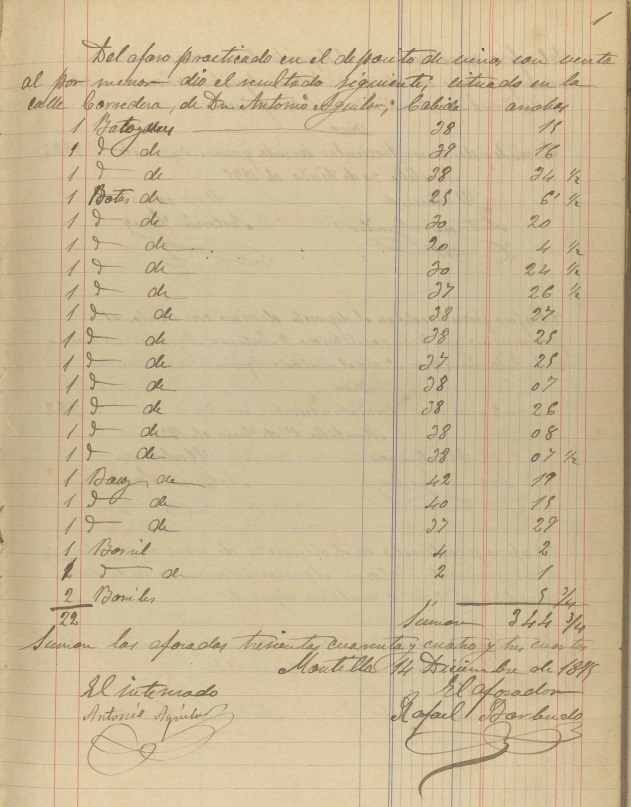 1
Del aforo practicado en el deposito de vinos con venta
al por menor dio el resultado siguiente, situado en la
calle Corredera, de Dn. Antonio Aguilar; Cabida arrobas
1 38 15
1 d de 39 16
1 d de 38 34 ½
1 Botas de 25 6 ½
1 d de 30 20
1 d de 20 4 ½
1 d de 30 24 ½
1 d de 37 26 ½
1 d de 38 27
1 d de 38 25
1 d de 37 25
1 d de 38 07
1 d de 38 26
1 d de 38 08
1 d de 38 07 ½
1 de 42 19
1 d de 40 15
1 d de 37 29
1 Barril 4 2
d de 2 1
2 Barriles " 5 3/4
22 Suman 344 3/4
Suman las aforadas trescientas cuarenta y cuatro y tres cuartos
Montilla 14 Diciembre de 1895
El interesado El aforador
Antonio Aguilar Rafael Barbudo